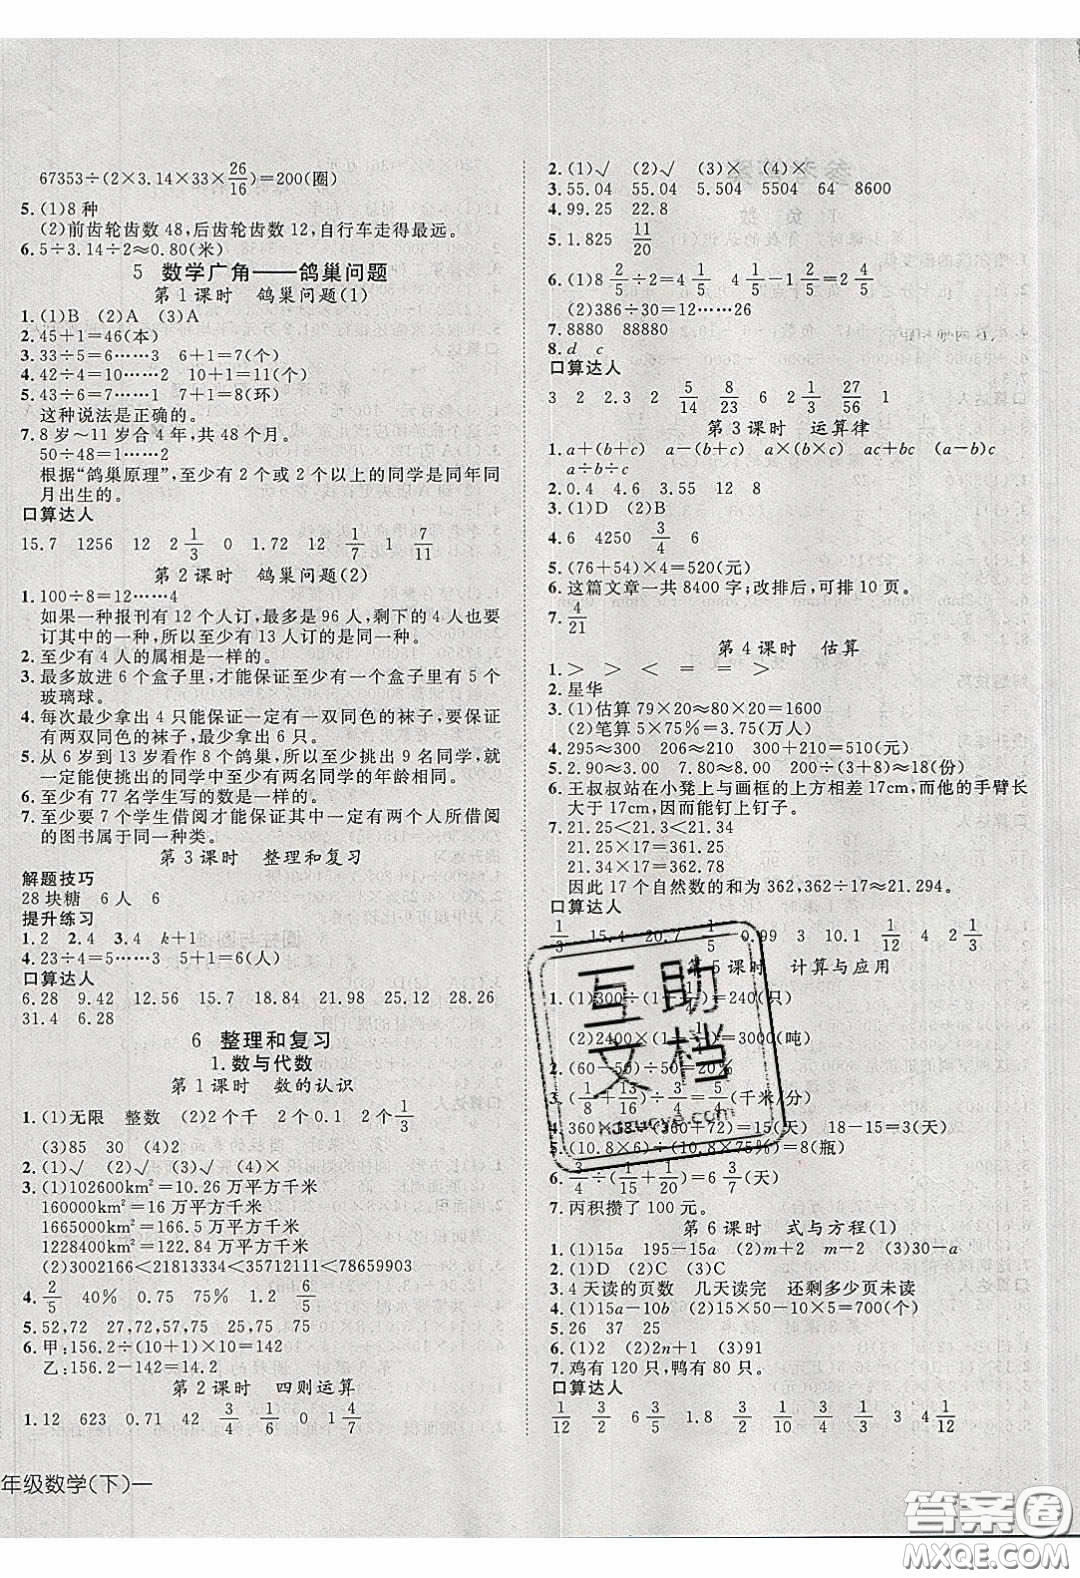 67353÷(2×3.14×33×26/16)=200(圈)
5.(1)8 种
(2)前齿轮齿数 48,后齿轮齿数 12,自行车走得最远。
6.5÷3.14÷2≈0.80(米)
5 数学广角——鸽巢问题
第 1 课时 鸽巢问题(1)
1.(1)B (2)A (3)A
2.45+1=46(本)
3.33÷5=6……3 6+1=7(个)
4.42÷4=10……2 10+1=11(个)
5.43÷6=7……1 7+1=8(环)
这种说法是正确的。
7.8 岁～11 岁合 4 年,共 48 个月。
50÷48=1……2
根据“鸽巢原理”,至少有 2 个或 2 个以上的同学是同年同
月出生的。
口算达人
15.7 1256 12 2 1/3 0 1.72 12 1/7 1 7/11
第 2 课时 鸽巢问题(2)
1.100÷8=12……4
如果一种报刊有 12 个人订,最多是 96 人,剩下的 4 人也要
订其中的一种,所以至少有 13 人订的是同一种。
2.至少有 4 人的属相是一样的。
3.最多放进 6 个盒子里,才能保证一定有一个盒子里有 5 个
玻璃球。
4.每次最少拿出 4 只能保证一定有一双同色的袜子,要保证
有两双同色的袜子,最少拿出 6 只。
5.从 6 岁到 13 岁看作 8 个鸽巢,所以至少挑出 9 名同学,就
一定能使挑出的同学中至少有两名同学的年龄相同。
6.至少有 77 名学生写的数是一样的。
7.至少要 7 个学生借阅才能保证其中一定有两个人所借阅
的图书属于同一种类。
第 3 课时 整理和复习
解题技巧
28 块糖 6 人 6
提升练习
1.2 2.4 3.4 k+1
4.23÷4=5……3 5+1=6(人)
口算达人
6.28 9.42 12.56 15.7 18.84 21.98 25.12 28.26
31.4 6.28
6 整理和复习
1.数与代数
第 1 课时 数的认识
1.(1)无限 整数 (2)2 个千 2 个 0.1 2 个 1/3
(3)85 30 (4)2
2.(1)√ (2)√ (3)√ (4)×
3.(1)102600km²=10.26 万平方千米
160000km²=16 万平方千米
1665000km²=166.5 万平方千米
1228400km²=122.84 万平方千米
(2)3002166<21813334<35712111<78659903
4.2/5 40% 0.75 75% 1.2 6/5
5.52,72 27,72,57,25,75 25,75 75
6.甲:156.2÷(10+1)×10=142
乙:156.2-142=14.2
第 2 课时 四则运算
1.12 623 0.71 42 3/4 1/6 0 1 4/7
年级数学(下)一
2.(1)√ (2)√ (3)× (4)×
3.55.04 55.04 5.504 5504 64 8600
4.99.25 22.8
5.1.81 11/20
6.(1)8 2/5÷2=4 1/5 4 1/5-1 4/5=2 2/5
(2)386÷30=12……26
7.8880 88880
8.d c
口算达人
3 2 2.3 2 5/14 8/23 6 2 1/2 27/56 1
第 3 课时 运算律
1.a+(b+c) a-(b+c) a×(b×c) ac+bc (a-b)c
a÷b÷c
2.0.4 4.6 3.55 12 8
3.(1)D (2)B
4.6 4250 3/4 6
5.(76+54)×4=520(元)
6.这篇文章一共 8400 字;改排后,可排 10 页。
7.4/21
第 4 课时 估算
1.> > < = = >
2.星华
3.(1)估算 79×20≈80×20=1600
(2)笔算 5×75%=3.75(万人)
4.295≈300 206≈210 300+210=510(元)
5.2.90≈3.00 7.80≈8.00 200÷(3+8)≈18(份)
6.王叔叔站在小凳上与画框的上方相差17cm,而他的手臂长
大于 17cm,因而能钉上钉子。
7.21.25<21.3<21.34
21.25×17=361.25
21.34×17=362.78
因此 17 个自然数的和为 362,362÷17≈21.294。
口算达人
1/3 15.4 20.7 1/5 0.99 3 10.1 1/12 4 2 1/3
第 5 课时 计算与应用
(千米/分)
4.360×3÷(360+72)=15(天) 18-15=3(天)
5.(10.8×6)÷(10.8×75%)=8(瓶)
7.丙积攒了 100 元。
第 6 课时 式与方程(1)
1.(1)15a 195-15a (2)m+2 m-2 (3)30-a
2.(1)D (2)C (3)C
3.4 天读的页数 几天读完 还剩多少页未读
4.(1)15a-10b (2)15×50-10×5=700(个)
5.26 37 35
6.(1)2 (2)2n+1 (3)91
7.鸡有 120 只,鸭有 80 只。
口算达人
1/12 3/5 6 3/5 1.8 3/2 4/5 1/3 3 4 1/12
互助
文档
答案圈
MXQE.COM